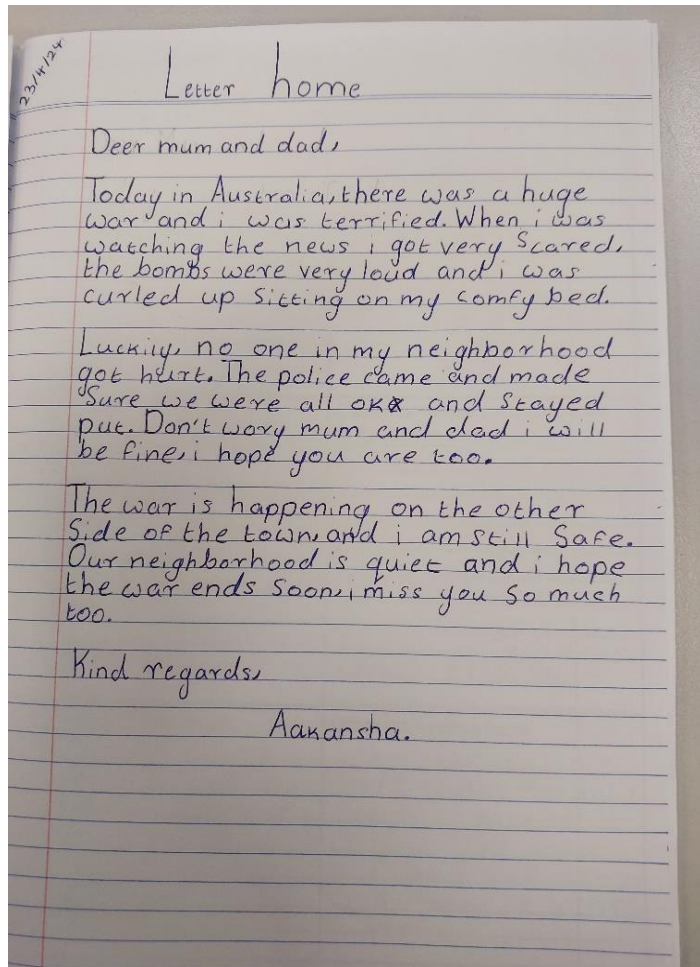 23/4/24
Letter home
Deer mum and dad,
Today in Australia, there was a huge
war and i was terrified. When i was
watching the news i got very Scared,
the bombs were very loud and i was
curled up Sitting on my comfy bed.
Luckily, no one in my neighborhood
got hurt. The police came and made
Sure we were all ok and stayed
put. Don't wory mum and dad i will
be fine, i hope you are too.
The war is happening on the other
Side of the town, and i am still Safe.
Our neighborhood is quiet and i hope
the war ends Soon, i miss you So much
too.
Kind regards,
Aakansha.